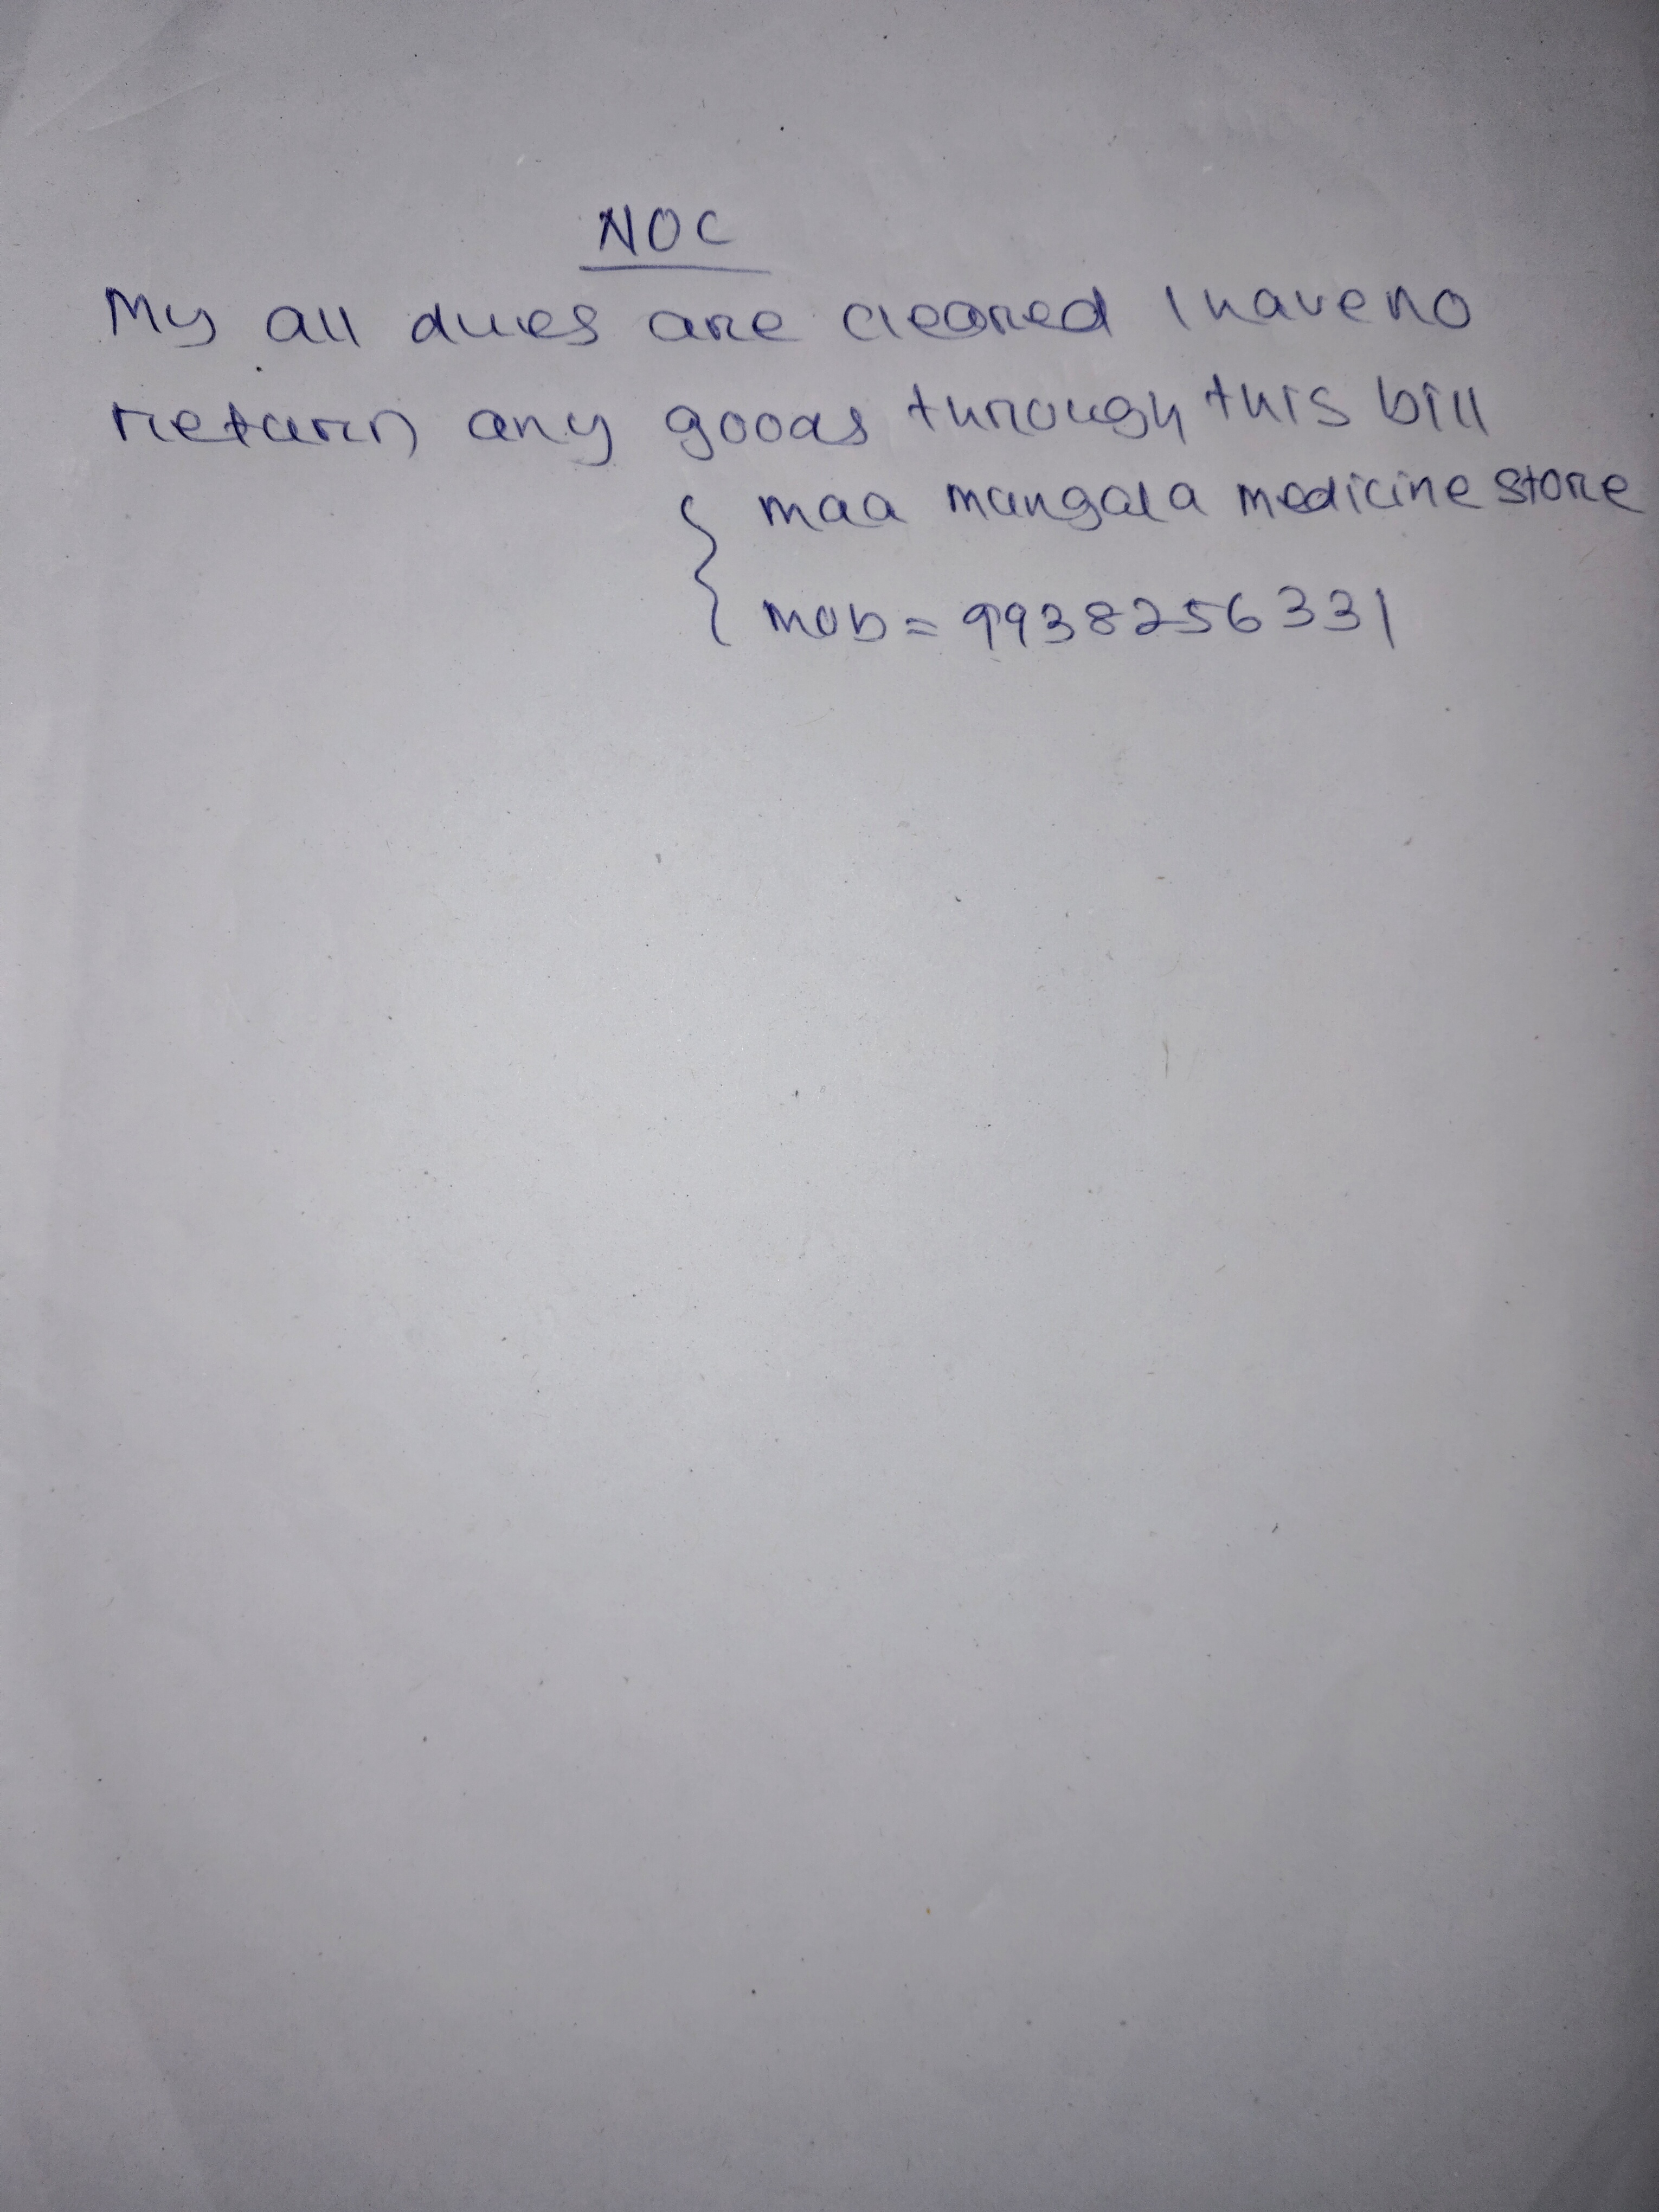 NOC
My all dues are cleared I have no
return any goods through this bill
maa mangala medicine store
mob = 9938256331